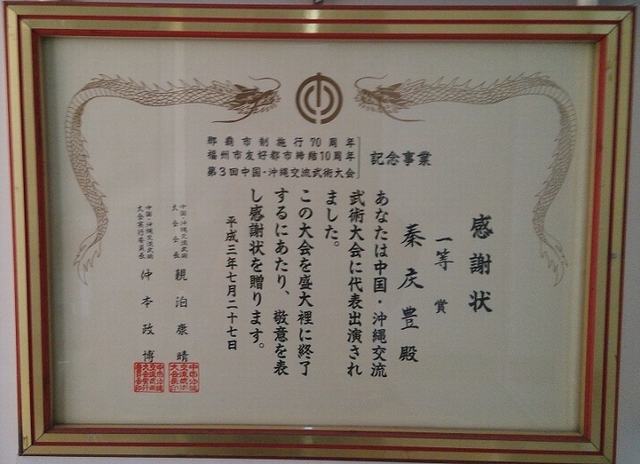 那覇市制施行70周年
福州市友好都市締結10周年
第3回中国・沖縄交流武術大会
記念事業
感謝状
一等賞
秦庆豊殿
あなたは中国・沖縄交流
武術大会に代表出演され
ました。
この大会を盛大裡に終了
するにあたり、敬意を表
し感謝状を贈ります。
平成三年七月二十七日
中国・沖縄交流武術
大会会長
親泊康晴
中国・沖縄交流武術
大会実行委員長
仲本政博